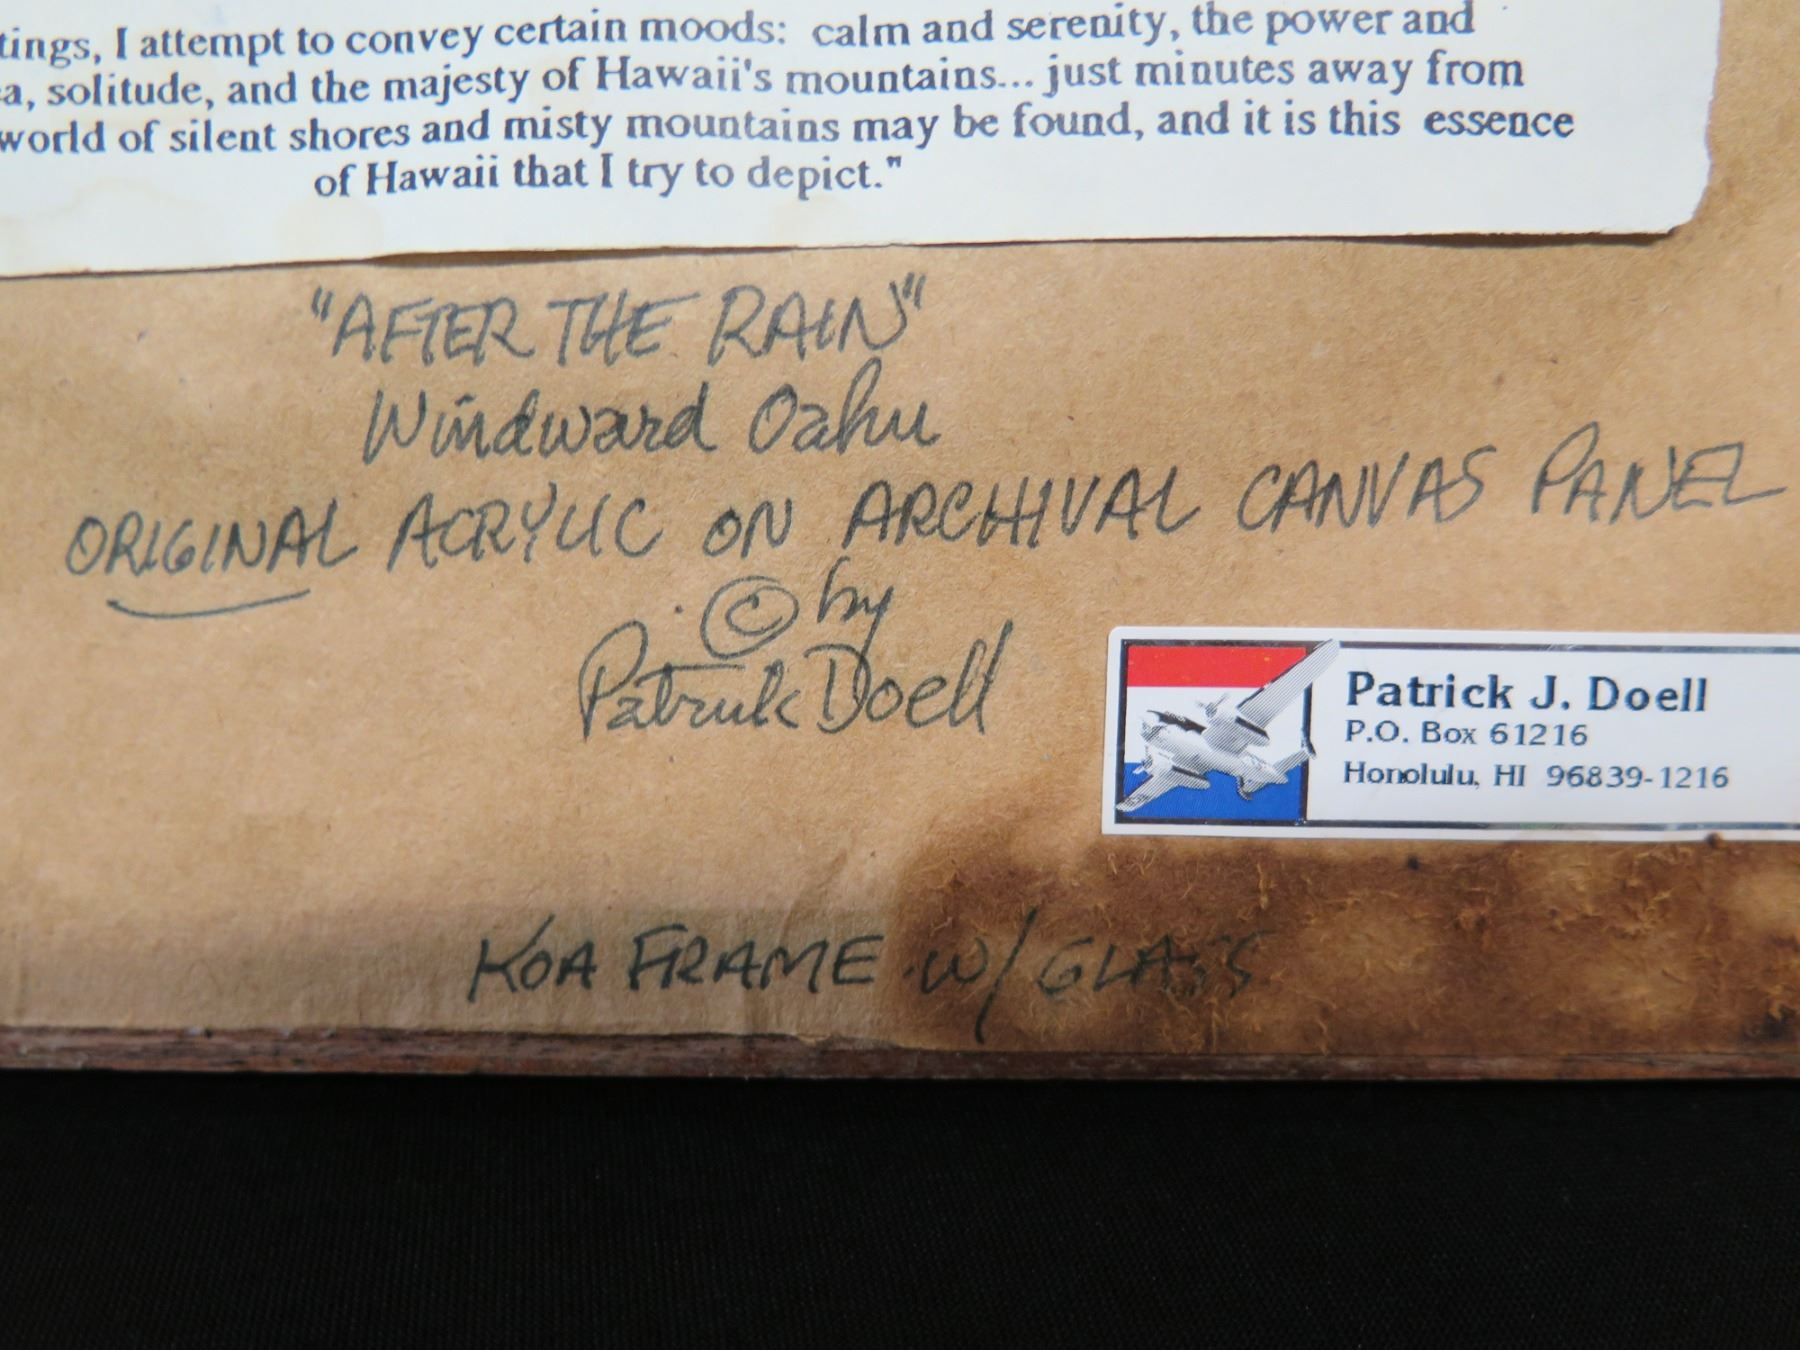 tings, I attempt to convey certain moods: calm and serenity, the power and
a, solitude, and the majesty of Hawaii's mountains... just minutes away from
world of silent shores and misty mountains may be found, and it is this essence
of Hawaii that I try to depict."
"AFTER THE RAIN"
Windward Oahu
ORIGINAL ACRYLIC ON ARCHIVAL CANVAS PANEL
© by
Patrick Doell
Patrick J. Doell
P.O. Box 61216
Honolulu, HI 96839-1216
KOA FRAME W/ GLASS